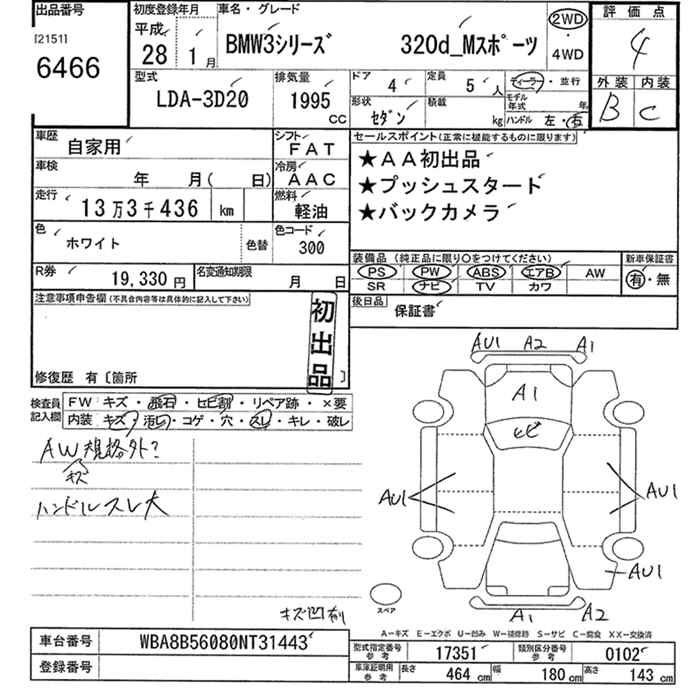 出品番号
[2151]
6466
初度登録年月
平成
28年
1月
車名・グレード
BMW3シリーズ 320d_Mスポーツ
2WD
・
4WD
評価点
4
外装 内装
B C
型式
LDA-3D20
排気量
1995
CC
ドア 4
定員 5人
ディーラー・並行
形状 セダン
積載 kg
モデル年式 年
ハンドル 左・右
車歴 自家用
シフト FAT
車検 年 月( 日)
冷房 AAC
走行 13万3千436 km
燃料 軽油
色 ホワイト
色替
色コード 300
R券 19,330円
名変通知期限 月 日
セールスポイント(正常に機能するものに限ります)
★AA初出品
★プッシュスタート
★バックカメラ
装備品 (純正品に限り〇をつけてください)
新車保証書
PS PW ABS エアB AW
SR ナビ TV カワ
有・無
後日品 保証書
注意事項申告欄(不具合内容等は具体的に記入して下さい)
初出品
修復歴 有〔箇所 〕
検査員記入欄
FW キズ・飛石・ヒビ割・リペア跡・×要
内装 キズ・汚れ・コゲ・穴・スレ・キレ・破レ
AW規格外?
キズ
ハンドルスレ大
キズ凹有り
AU1 A2 A1
A1
ヒビ
AU1
AU1
AU1
A1 A2
スペア
A-キズ E-エクボ U-凹み W-補修跡 S-サビ C-腐食 XX-交換済
車台番号 WBA8B56080NT31443
登録番号
型式指定番号 参考 17351
類別区分番号 参考 0102
車庫証明用 参考
長さ 464 cm
幅 180 cm
高さ 143 cm